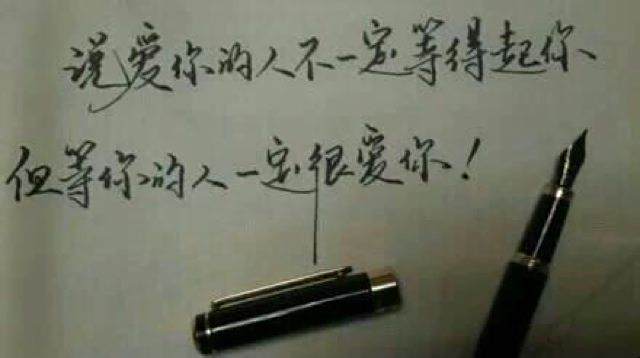 说爱你的人不一定等得起你
但等你的人一定很爱你！